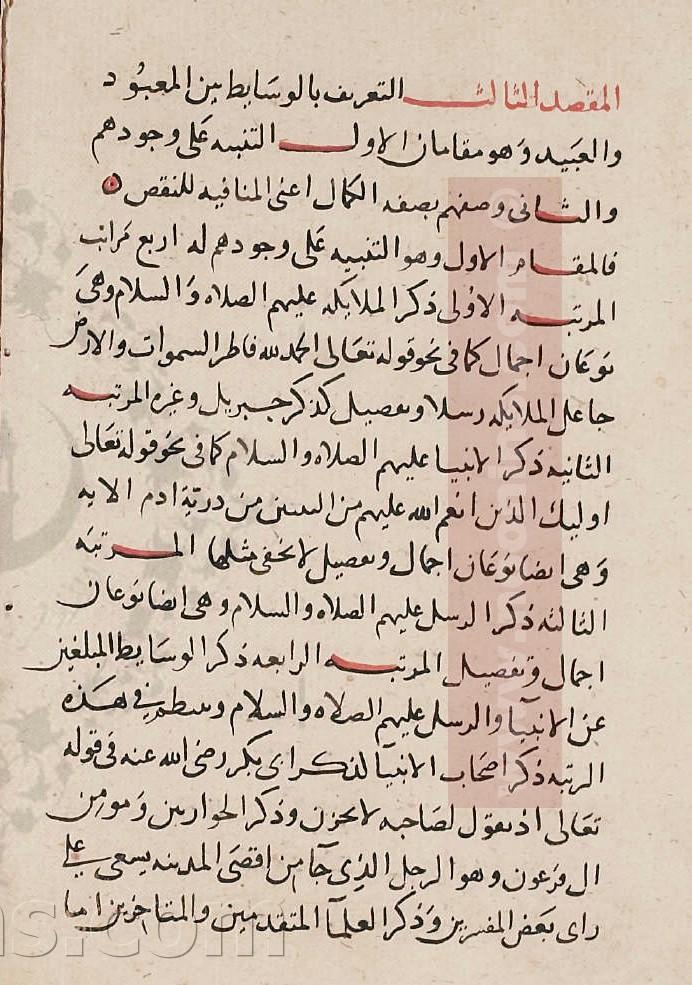 المقصد الثالث التعريف بالوسايط بين المعبود
والعبيد وهو مقامان الاول التنبيه على وجودهم
والثانى وصفهم بصفه الكمال اعنى المنافيه للنقص
فالمقام الاول وهو التنبيه على وجودهم له اربع مراتب
المرتبه الاولى ذكر الملايكه عليهم الصلاه والسلام وهى
نوعان اجمال كما فى نحو قوله تعالى الحمد لله فاطر السموات والارض
جاعل الملايكه رسلا وتفصيل كذكر جبريل وغيره المرتبه
الثانيه ذكر الانبيا عليهم الصلاه والسلام كما فى نحو قوله تعالى
اوليك الذين انعم الله عليهم من النبيين من ذرية ادم الايه
وهى ايضا نوعان اجمال وتفصيل لا يخفى مثلها المرتبه
الثالثه ذكر الرسل عليهم الصلاه والسلام وهى ايضا نوعان
اجمال وتفصيل المرتبه الرابعه ذكر الوسايط المبلغين
عن الانبيآ والرسل عليهم الصلاه والسلام وينتظم فى هذه
الرتبه ذكر اصحاب الانبيآ لذكر ابى بكر رضى الله عنه فى قوله
تعالى اذ يقول لصاحبه لا تحزن وذكر الحواريين ومومن
ال فرعون وهو الرجل الذى جآ من اقصى المدينه يسعى على
راى بعض المفسرين وذكر العلمآ المتقدمين والمتاخرين اما
ns.com